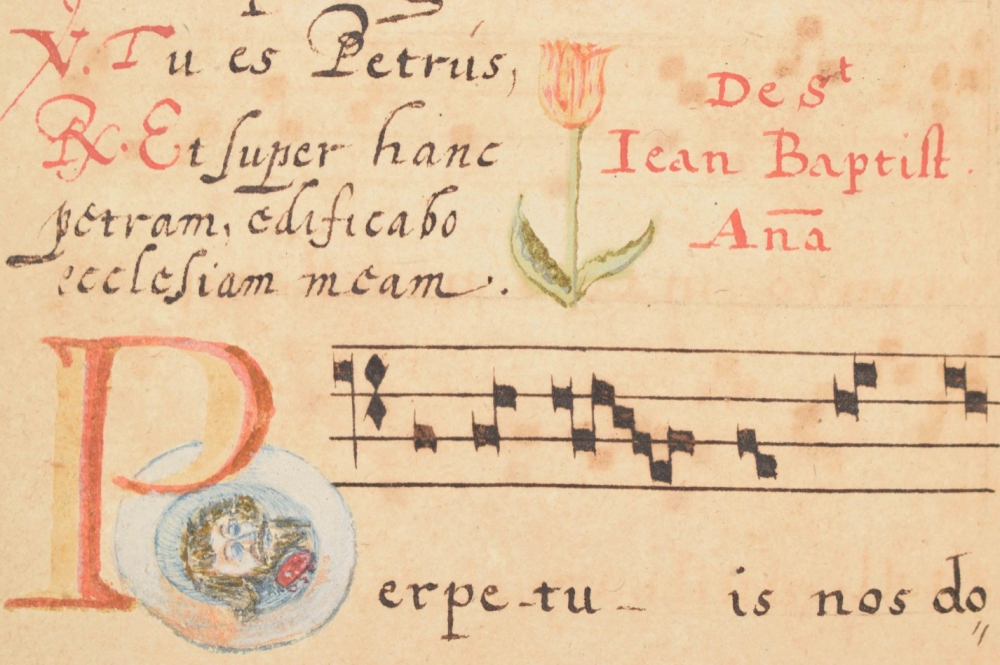 ℣. Tu es Petrus,
℟. Et ſuper hanc
petram, edificabo
eccleſiam meam.
De St
Iean Baptiſt.
Anā
Perpe-tu-is nos do